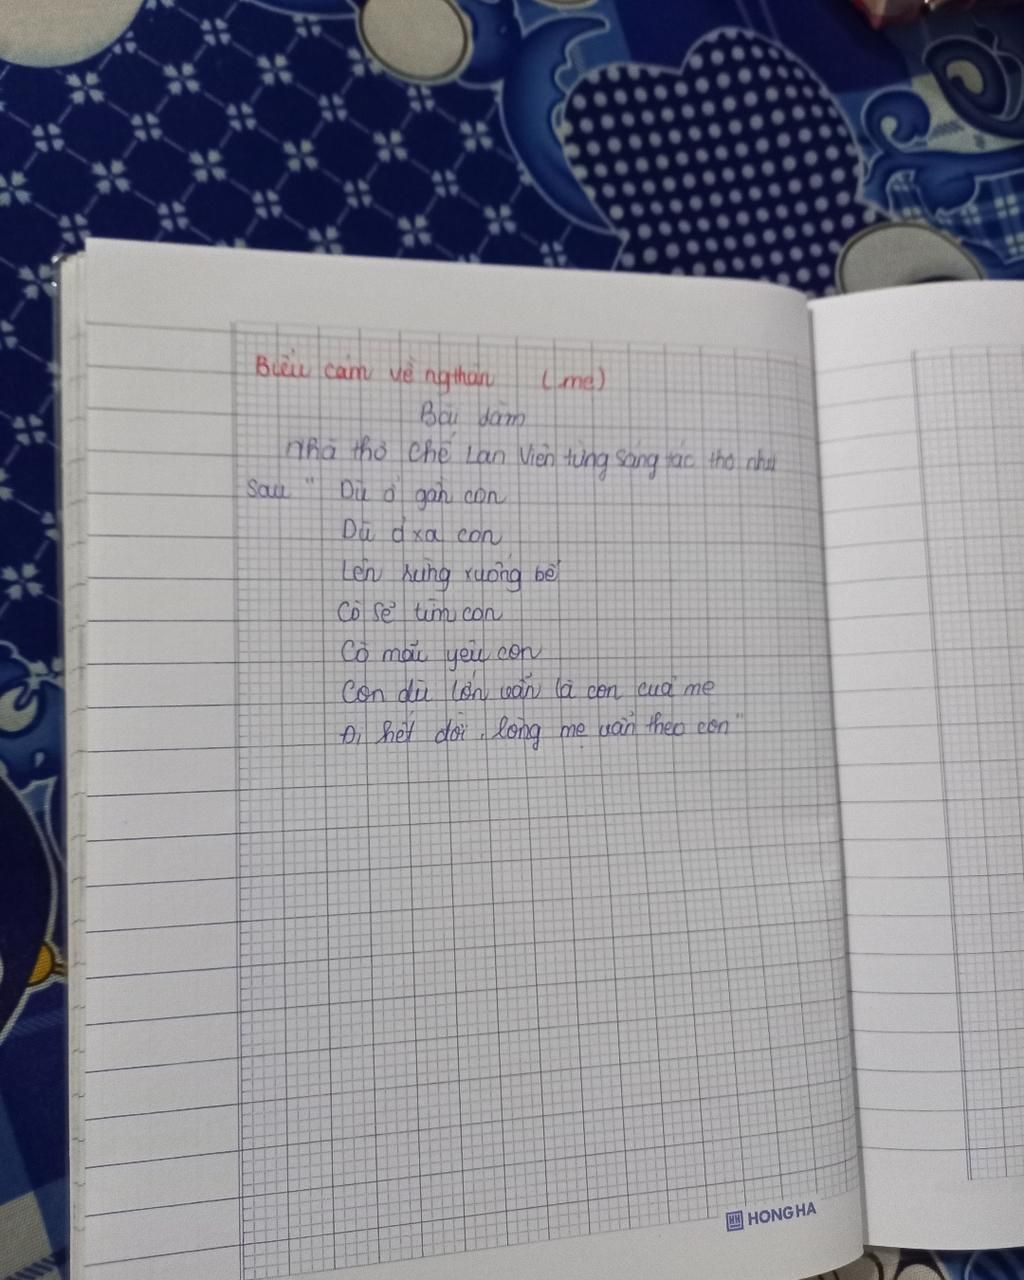 Biểu cảm về ngthân (mẹ)
Bài làm
Nhà thơ Chế Lan Viên từng sáng tác thơ như
sau " Dù ở gần con
Dù ở xa con
Lên rừng xuống bể
Cò sẽ tìm con
Cò mãi yêu con
Con dù lớn vẫn là con của mẹ
Đi hết đời, lòng mẹ vẫn theo con"
HONG HA